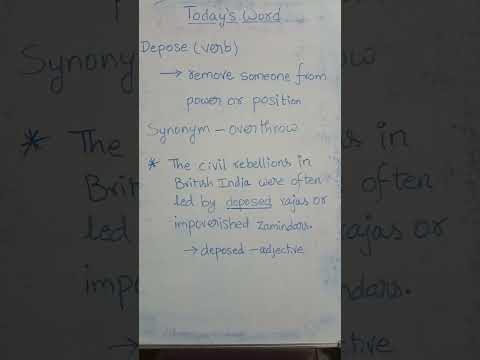 Today's Word
Depose (verb)
→ remove someone from
power or position
Synonym - overthrow
* The civil rebellions in
British India were often
led by deposed rajas or
impoverished zamindars.
→ deposed - adjective